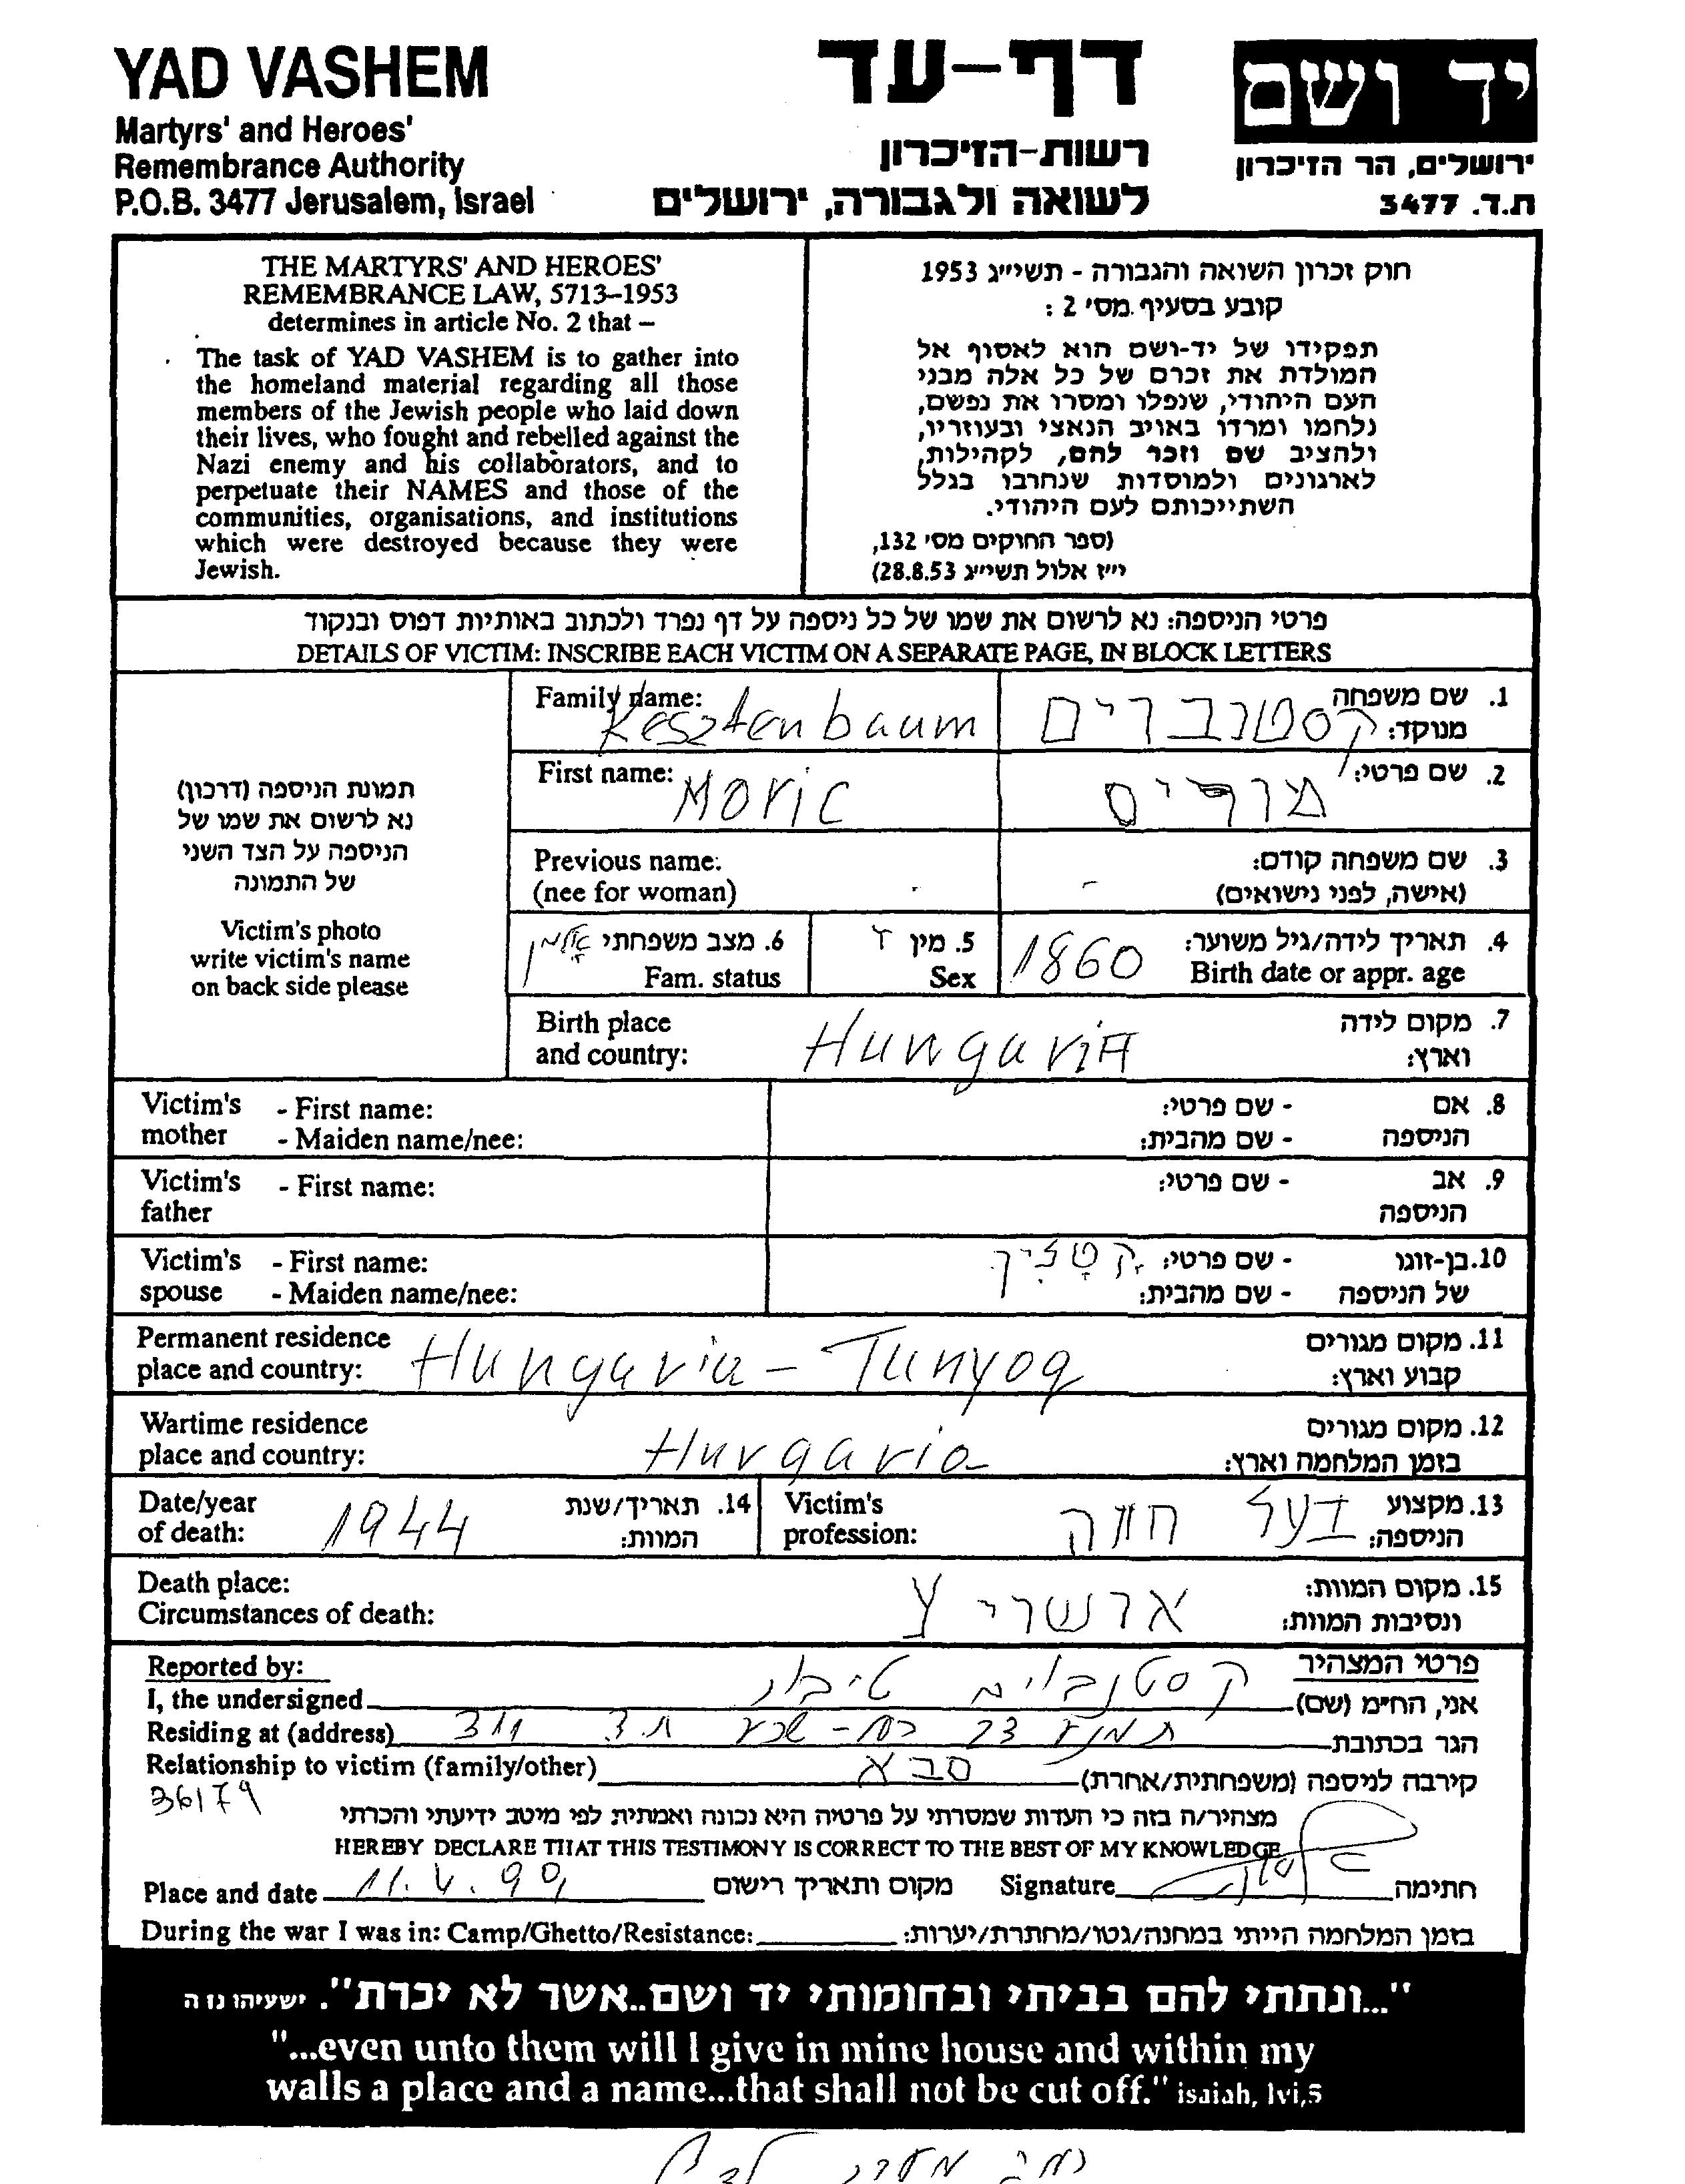 YAD VASHEM
Martyrs' and Heroes'
Remembrance Authority
P.O.B. 3477 Jerusalem, Israel
דף-עד
רשות-הזיכרון
לשואה ולגבורה, ירושלים
יד ושם
ירושלים, הר הזיכרון
ת.ד. 3477
THE MARTYRS' AND HEROES'
REMEMBRANCE LAW, 5713–1953
determines in article No. 2 that –
The task of YAD VASHEM is to gather into
the homeland material regarding all those
members of the Jewish people who laid down
their lives, who fought and rebelled against the
Nazi enemy and his collaborators, and to
perpetuate their NAMES and those of the
communities, organisations, and institutions
which were destroyed because they were
Jewish.
חוק זכרון השואה והגבורה - תשי״ג 1953
קובע בסעיף מס׳ 2 :
תפקידו של יד-ושם הוא לאסוף אל
המולדת את זכרם של כל אלה מבני
העם היהודי, שנפלו ומסרו את נפשם,
נלחמו ומרדו באויב הנאצי ובעוזריו,
ולהציב שם וזכר להם, לקהילות,
לארגונים ולמוסדות שנחרבו בגלל
השתייכותם לעם היהודי.
(ספר החוקים מס׳ 132,
י״ז אלול תשי״ג 28.8.53)
פרטי הניספה: נא לרשום את שמו של כל ניספה על דף נפרד ולכתוב באותיות דפוס ובנקוד
DETAILS OF VICTIM: INSCRIBE EACH VICTIM ON A SEPARATE PAGE, IN BLOCK LETTERS
תמונת הניספה (דרכון)
נא לרשום את שמו של
הניספה על הצד השני
של התמונה
Victim's photo
write victim's name
on back side please
Family name: Kesztenbaum
1. שם משפחה
מנוקד: קסטנברים
First name: Moric
2. שם פרטי: מוריס
Previous name:
(nee for woman)
3. שם משפחה קודם: -
(אישה, לפני נישואים)
4. תאריך לידה/גיל משוער: 1860
Birth date or appr. age
5. מין ז
Sex
6. מצב משפחתי אלמן
Fam. status
Birth place
and country: Hungaria
7. מקום לידה
וארץ:
Victim's mother - First name:
- Maiden name/nee:
8. אם הניספה - שם פרטי:
- שם מהבית:
Victim's father - First name:
9. אב הניספה - שם פרטי:
Victim's spouse - First name:
- Maiden name/nee:
10. בן-זוגו של הניספה - שם פרטי:
- שם מהבית:
Permanent residence
place and country: Hungaria - Tunyog
11. מקום מגורים
קבוע וארץ:
Wartime residence
place and country: Hungaria
12. מקום מגורים
בזמן המלחמה וארץ:
Date/year
of death: 1944
14. תאריך/שנת
המוות:
Victim's
profession:
13. מקצוע
הניספה: בעל חווה
Death place:
Circumstances of death:
15. מקום המוות:
ונסיבות המוות: אושוויץ
Reported by:
פרטי המצהיר
I, the undersigned קסטנבוים טיבור אני, הח״מ (שם)
Residing at (address) 23 באר-שבע ת.ד. הגר בכתובת
Relationship to victim (family/other) סבא קירבה לניספה (משפחתית/אחרת)
36179
מצהיר/ה בזה כי העדות שמסרתי על פרטיה היא נכונה ואמתית לפי מיטב ידיעתי והכרתי
HEREBY DECLARE THAT THIS TESTIMONY IS CORRECT TO THE BEST OF MY KNOWLEDGE
Place and date 11.4.99 מקום ותאריך רישום Signature חתימה
During the war I was in: Camp/Ghetto/Resistance: בזמן המלחמה הייתי במחנה/גטו/מחתרת/יערות:
"...ונתתי להם בביתי ובחומותי יד ושם..אשר לא יכרת". ישעיהו נו ה
"...even unto them will I give in mine house and within my
walls a place and a name...that shall not be cut off." isaiah, lvi,5